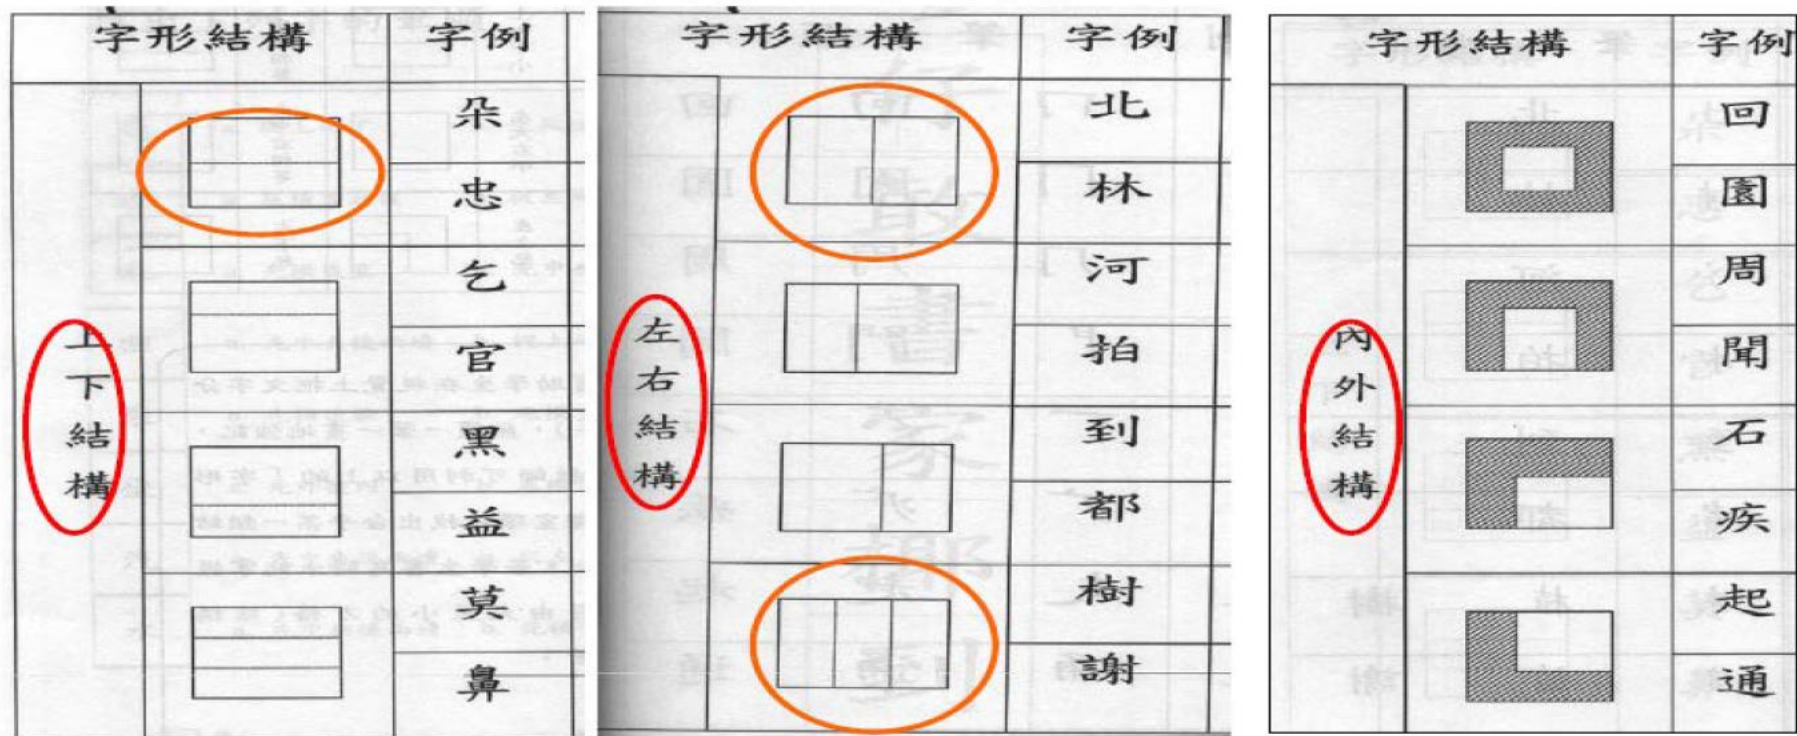 字形結構 字例
上下結構
朵
忠
乞
官
黑
益
莫
鼻
字形結構 字例
左右結構
北
林
河
拍
到
都
樹
謝
字形結構 字例
內外結構
回
園
周
聞
石
疾
起
通